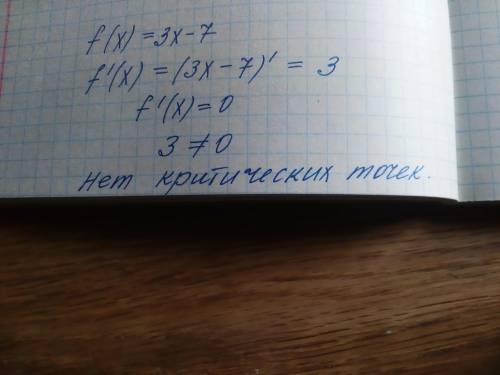 f(x) = 3x - 7
f'(x) = (3x - 7)' = 3
f'(x) = 0
3 ≠ 0
нет критических точек.